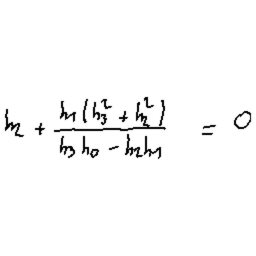 h₂ + \frac{h₁(h₃² + h₂²)}{h₃h₀ − h₂h₁} = 0